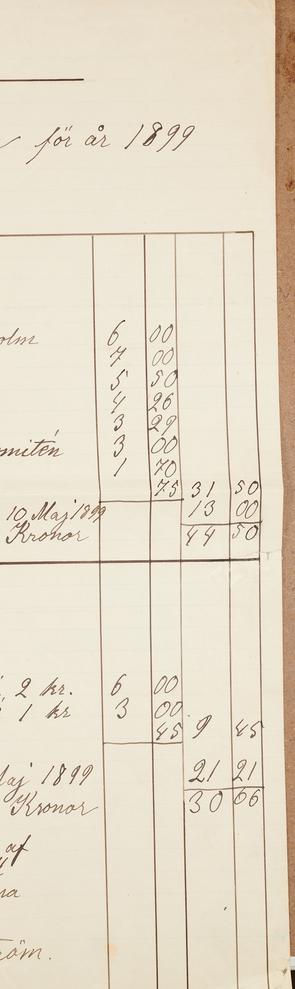 för år 1899
olm 6 00
7 00
5 50
4 26
3 29
mitén 3 00
1 70
75 31 50
10 Maj 1899 13 00
Kronor 44 50
2 kr. 6 00
1 kr 3 00
45 9 45
aj 1899 21 21
Kronor 30 66
af
na
röm.